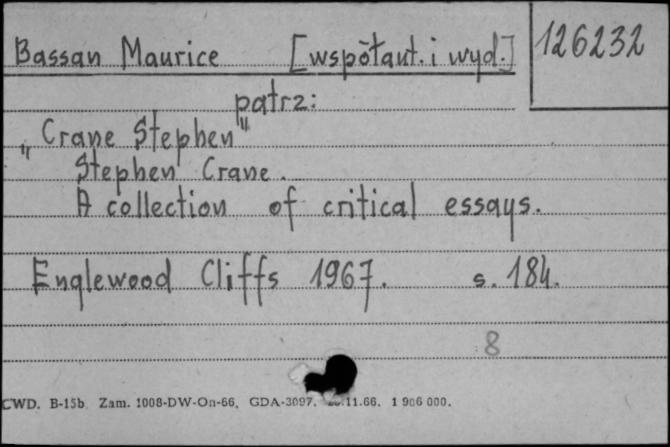 Bassan Maurice [współaut. i wyd.] 126232
patrz:
„Crane Stephen"
Stephen Crane.
A collection of critical essays.
Englewood Cliffs 1967. s. 184.
8
CWD. B-15b. Zam. 1008-DW-On-66. GDA-3097. .11.66. 1 906 000.